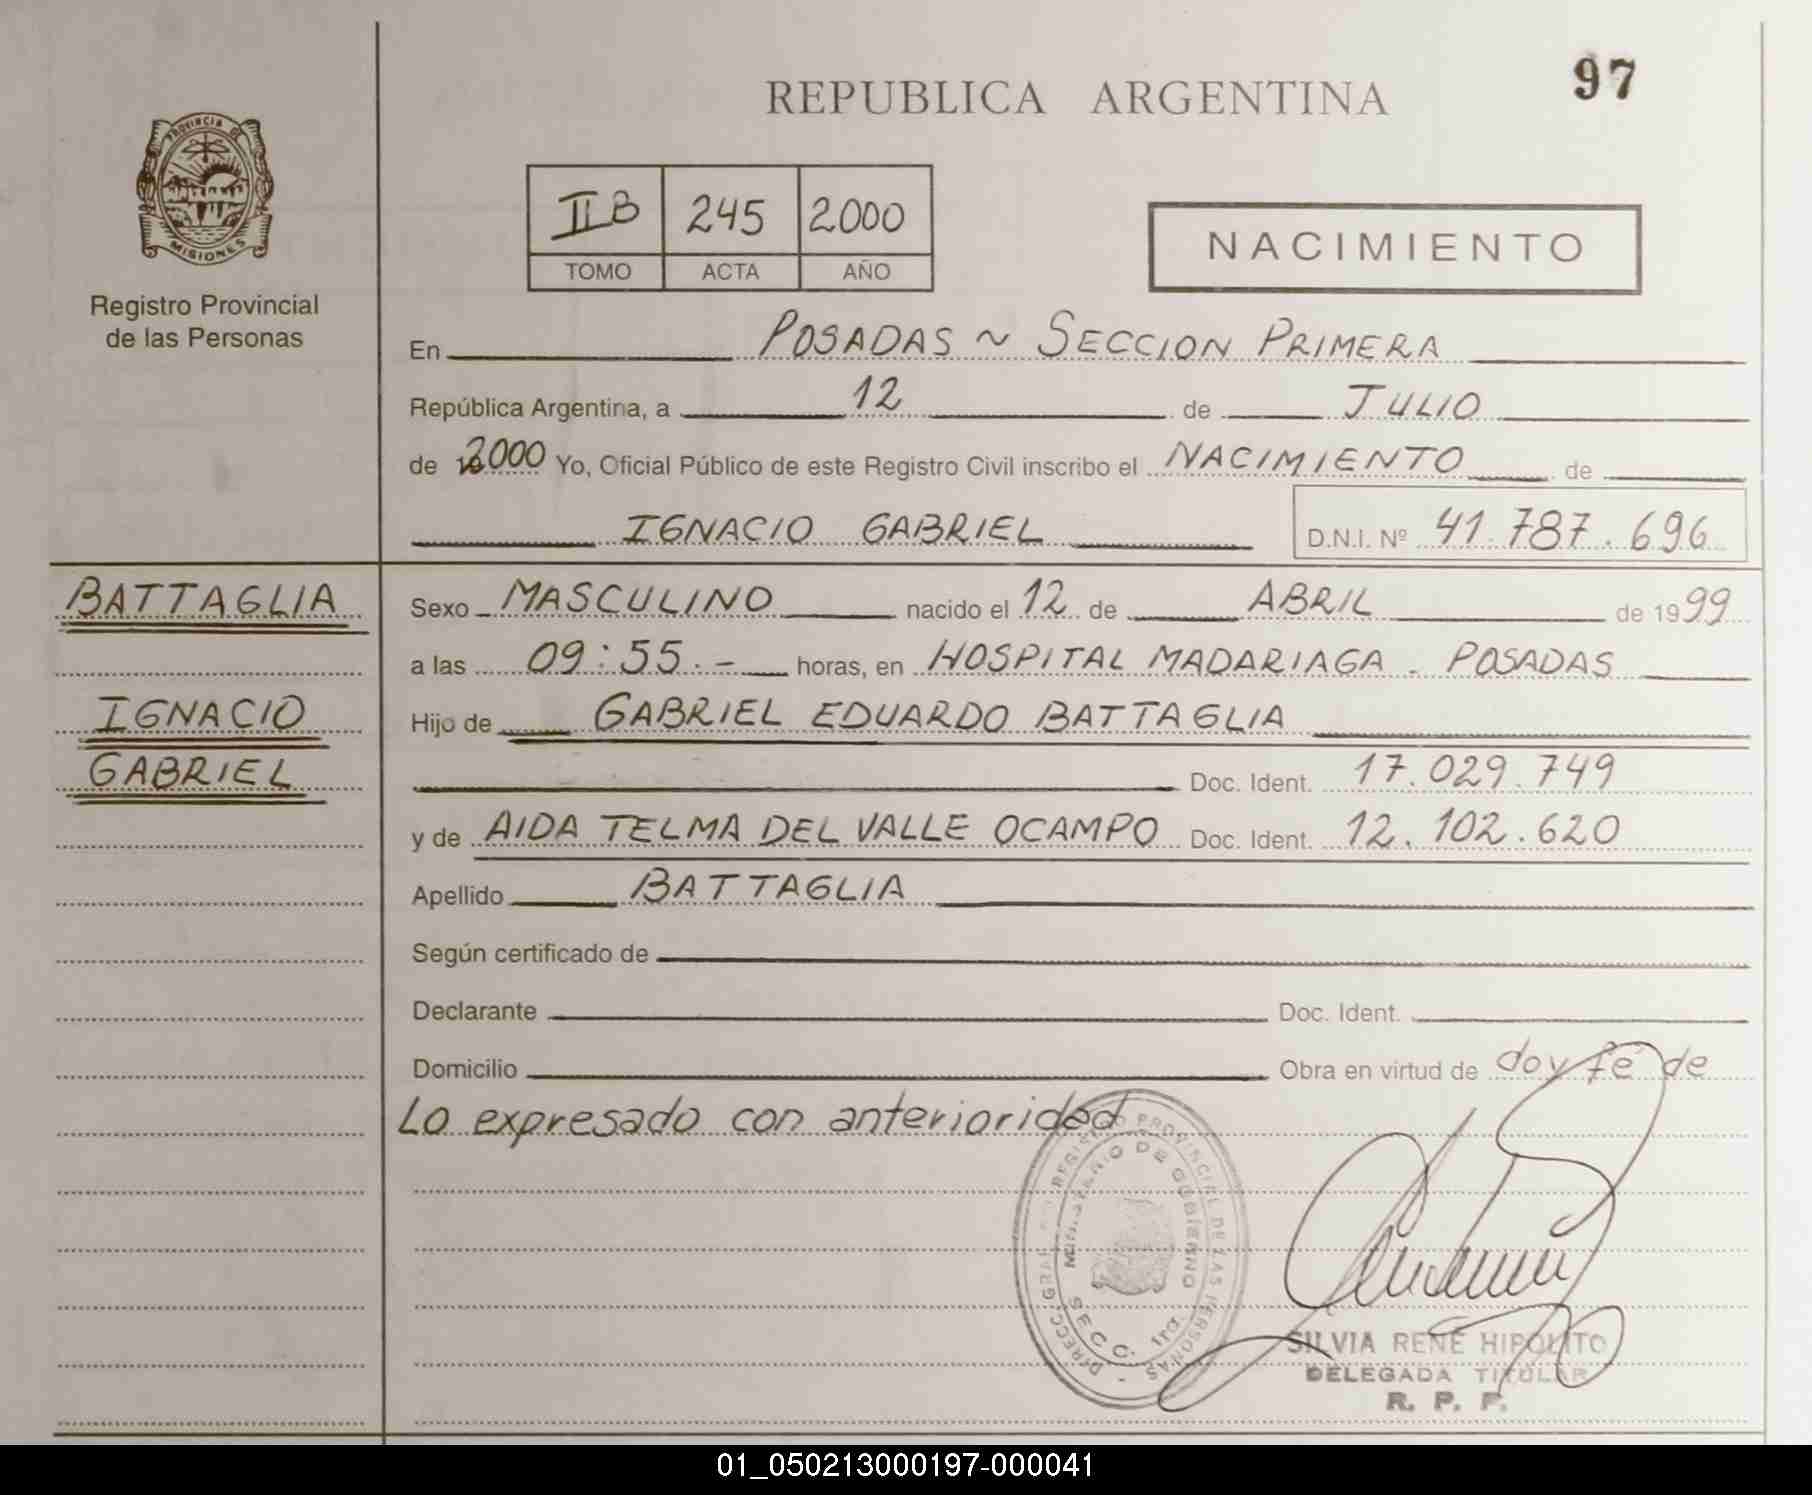 97
REPUBLICA ARGENTINA
PROVINCIA DE
MISIONES
Registro Provincial
de las Personas
II B 245 2000
TOMO ACTA AÑO
NACIMIENTO
En POSADAS ~ SECCION PRIMERA
República Argentina, a 12 de JULIO
de 2000 Yo, Oficial Público de este Registro Civil inscribo el NACIMIENTO de
IGNACIO GABRIEL D.N.I. Nº 41.787.696
BATTAGLIA
IGNACIO
GABRIEL
Sexo MASCULINO nacido el 12 de ABRIL de 1999
a las 09:55.- horas, en HOSPITAL MADARIAGA - POSADAS
Hijo de GABRIEL EDUARDO BATTAGLIA
Doc. Ident. 17.029.749
y de AIDA TELMA DEL VALLE OCAMPO Doc. Ident. 12.102.620
Apellido BATTAGLIA
Según certificado de
Declarante Doc. Ident.
Domicilio Obra en virtud de doy fé de
Lo expresado con anterioridad
DIRECC. GRAL. REGISTRO PROVINCIAL DE LAS PERSONAS -
MINISTERIO DE GOBIERNO
SECC. 1ra.
SILVIA RENÉ HIPOLITO
DELEGADA TITULAR
R. P. P.
01_050213000197-000041